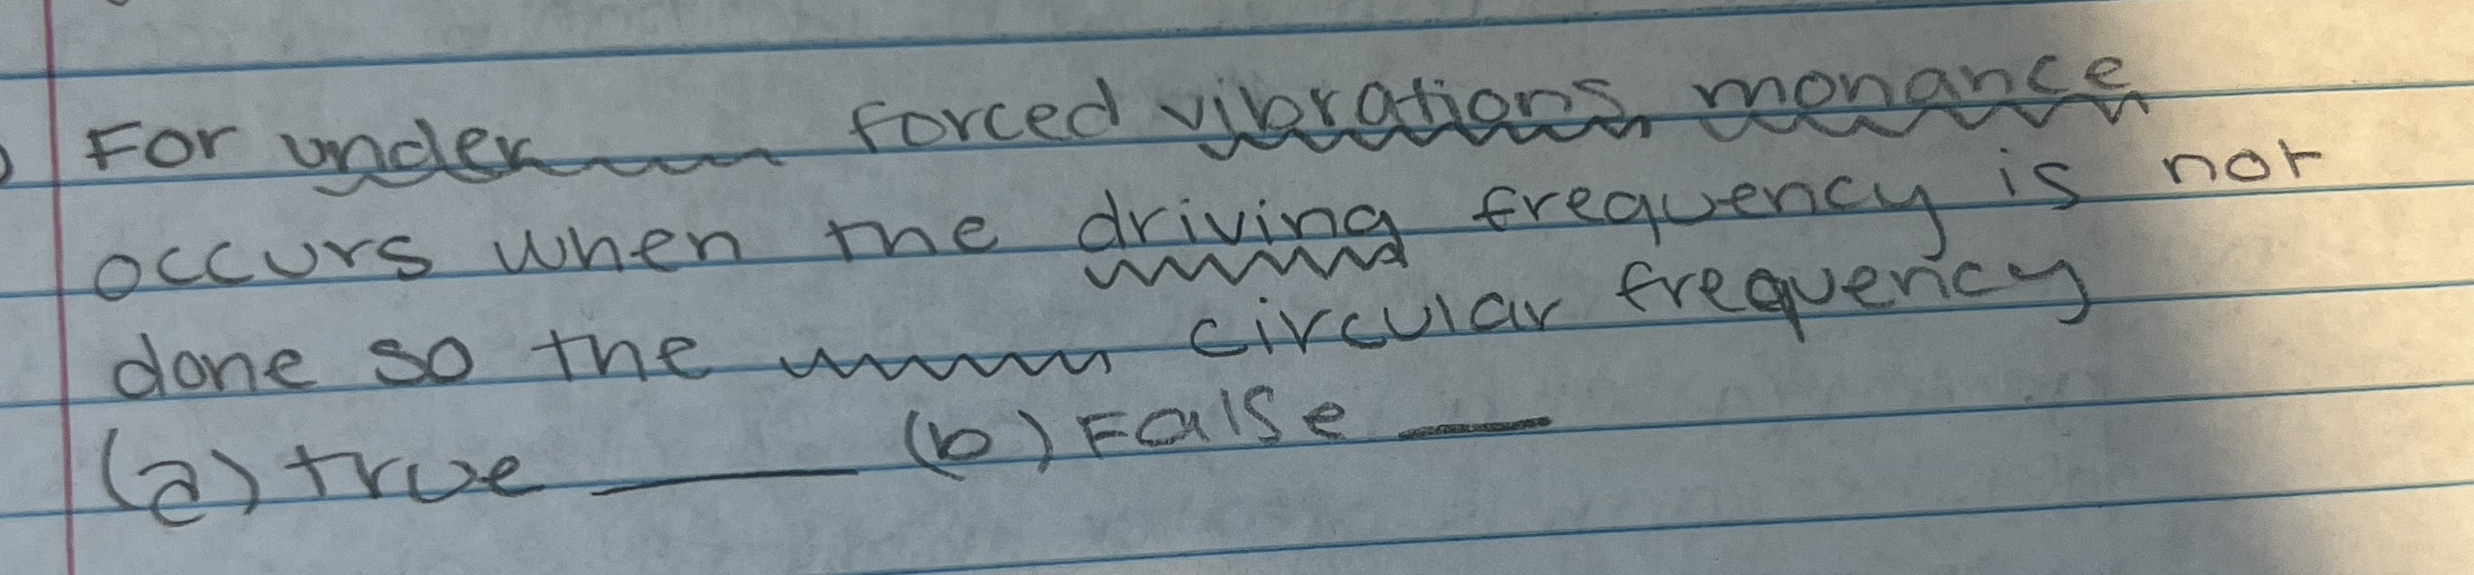 For under forced vibrations monance
occurs when the driving frequency is not
done so the circular frequency
(a) true ____ (b) False __